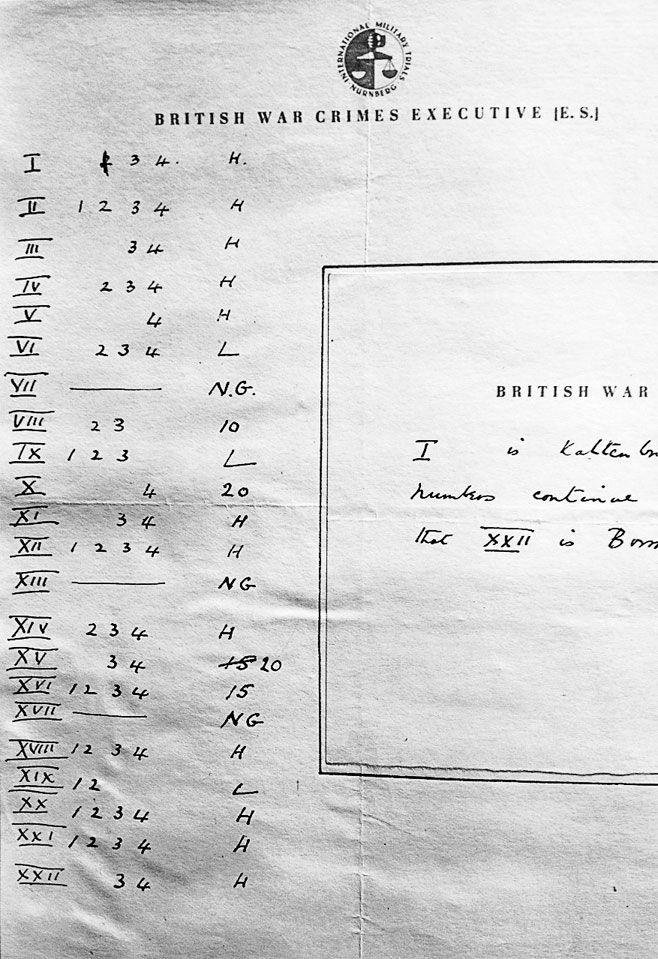 INTERNATIONAL MILITARY TRIALS NURNBERG
BRITISH WAR CRIMES EXECUTIVE [E.S.]
I 3 4. H.
II 1 2 3 4 H
III 3 4 H
IV 2 3 4 H
V 4 H
VI 2 3 4 L
VII N.G.
VIII 2 3 10
IX 1 2 3 L
X 4 20
XI 3 4 H
XII 1 2 3 4 H
XIII NG
XIV 2 3 4 H
XV 3 4 15 20
XVI 1 2 3 4 15
XVII NG
XVIII 1 2 3 4 H
XIX 1 2 L
XX 1 2 3 4 H
XXI 1 2 3 4 H
XXII 3 4 H
BRITISH WAR
I is Kaltenbr
numbers continue
that XXII is Borm